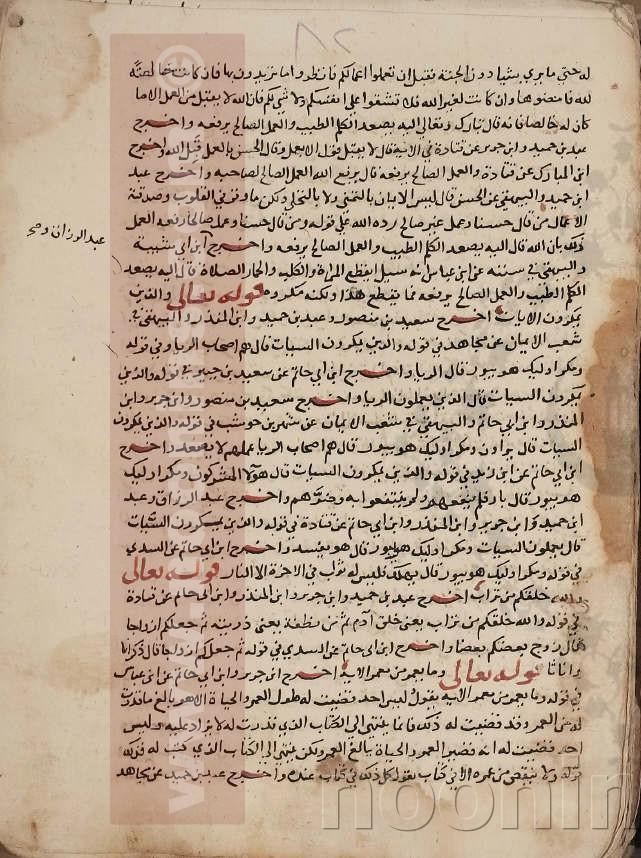 له حتى ما يرى بشيا دون الجنة فقبل ان تعملوا اعمالكم فانظروا ما تريدون بها فان كانت خالصة
لله فامضوها وان كانت لغير الله فلا تشقوا على انفسكم ولا شي لكم فان الله لا يقبل من العمل الا ما
كان له خالصا فانه قال تبارك وتعالى اليه يصعد الكلم الطيب والعمل الصالح يرفعه واخرج
عبد بن حميد وابن جرير عن قتادة في الاية قال لا يقبل قول الا بعمل وقال الحسن بالعمل قبل الله واخرج
ابن المبارك عن قتادة والعمل الصالح يرفعه قال يرفع الله العمل الصالح لصاحبه واخرج عبد
ابن حميد والبيهقي عن الحسن قال ليس الايمان بالتمني ولا بالتحلي ولكن ما وقر في القلوب وصدقة
الاعمال من قال حسنا وعمل غير صالح رده الله على قوله ومن قال حسنا وعمل صالحا رفعه العمل
ذلك بان الله قال اليه يصعد الكلم الطيب والعمل الصالح يرفعه واخرج ابن ابي شيبة
عبد الرزاق و
والبيهقي في سننه عن ابن عباس انه سيل ايقطع المراة والكلب والحمار الصلاة قال اليه يصعد
الكلم الطيب والعمل الصالح يرفعه فما يقطع هذا ولكنه مكروه قوله تعالى والذين
يمكرون الايات اخرج سعيد بن منصور وعبد بن حميد وابن المنذر والبيهقي في
شعب الايمان عن مجاهد في قوله والذين يمكرون السيات قال هم اصحاب الريا وفي قوله
ومكر اوليك هو يبور قال الريا واخرج ابن ابي حاتم عن سعيد بن جبير في قوله والذين
يمكرون السيات قال الذين يعملون الريا واخرج سعيد بن منصور وابن جرير وابن
المنذر وابن ابي حاتم والبيهقي في شعب الايمان عن شهر بن حوشب في قوله والذين يمكرون
السيات قال يراون ومكر اوليك هو يبور قال هم اصحاب الريا عملهم لا يصعد واخرج
ابن ابي حاتم عن ابن زيد في قوله والذين يمكرون السيات قال هولا المشركون ومكر اوليك
هو يبور قال بار فلم ينفعهم ولم ينتفعوا به وضرهم واخرج عبد الرزاق وعبد
ابن حميد وابن جرير وابن المنذر وابن ابي حاتم عن قتادة في قوله والذين يمكرون السيات
قال يعملون السيات ومكر اوليك هو يبور قال هو يفسد واخرج ابن ابي حاتم عن السدي
في قوله ومكر اوليك هو يبور قال يهلك فليس له ثواب في الاخرة الا النار قوله تعالى
والله خلقكم من تراب اخرج عبد بن حميد وابن جرير وابن المنذر وابن ابي حاتم عن قتادة
في قوله والله خلقكم من تراب يعني خلق ادم ثم من نطفة يعني ذريته ثم جعلكم ازواجا
قال زوج بعضكم بعضا واخرج ابن ابي حاتم عن السدي في قوله ثم جعلكم ازواجا قال ذكرانا
واناثا قوله تعالى وما يعمر من معمر الاية اخرج ابن جرير وابن ابي حاتم عن ابن عباس
في قوله وما يعمر من معمر الاية يقول ليس احد قضيت له طول العمر والحياة الا هو بالغ ما قدرت
له من العمر وقد قضيت له ذلك فانما ينتهي الى الكتاب الذي قدرت له لا يزاد عليه وليس
احد قضيت له انه قصير العمر والحياة ببالغ العمر ولكن ينتهي الى الكتاب الذي كتب له فذلك
قوله ولا ينقص من عمره الا في كتاب يقول كل ذلك في كتاب عنده واخرج عبد بن حميد عن مجاهد
noonin